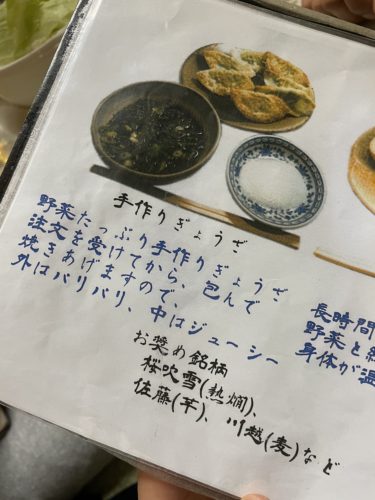 手作りぎょうざ
野菜たっぷり手作りぎょうざ
注文を受けてから、包んで
焼きあげますので、
外はパリパリ、中はジューシー
お奨め銘柄
桜吹雪(熱燗)、
佐藤(芋)、川越(麦)など
長時間
野菜と
身体が温